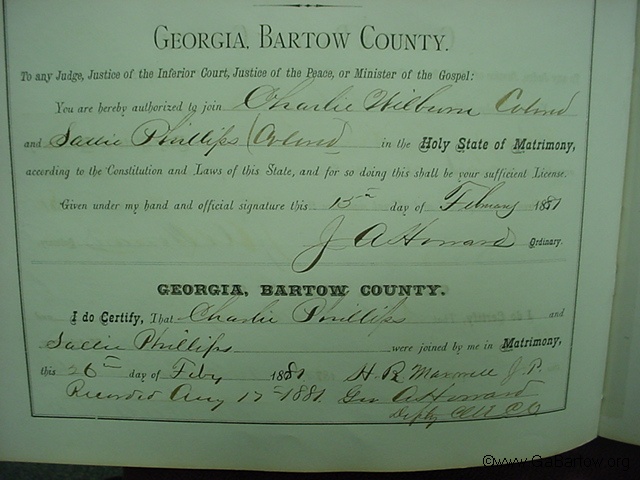 GEORGIA, BARTOW COUNTY.
To any Judge, Justice of the Inferior Court, Justice of the Peace, or Minister of the Gospel:
You are hereby authorized to join Charlie Wilburn Colored
and Sallie Phillips (Colored) in the Holy State of Matrimony,
according to the Constitution and Laws of this State, and for so doing this shall be your sufficient License.
Given under my hand and official signature this 15th day of February 1881
J A Howard Ordinary.
GEORGIA, BARTOW COUNTY.
I do Certify, That Charlie Phillips and
Sallie Phillips were joined by me in Matrimony,
this 26th day of Feby 1881 H R Maxwell J. P.
Recorded Aug 17th 1881. Geo A Howard
Depty Clk C O
©www.GaBartow.org